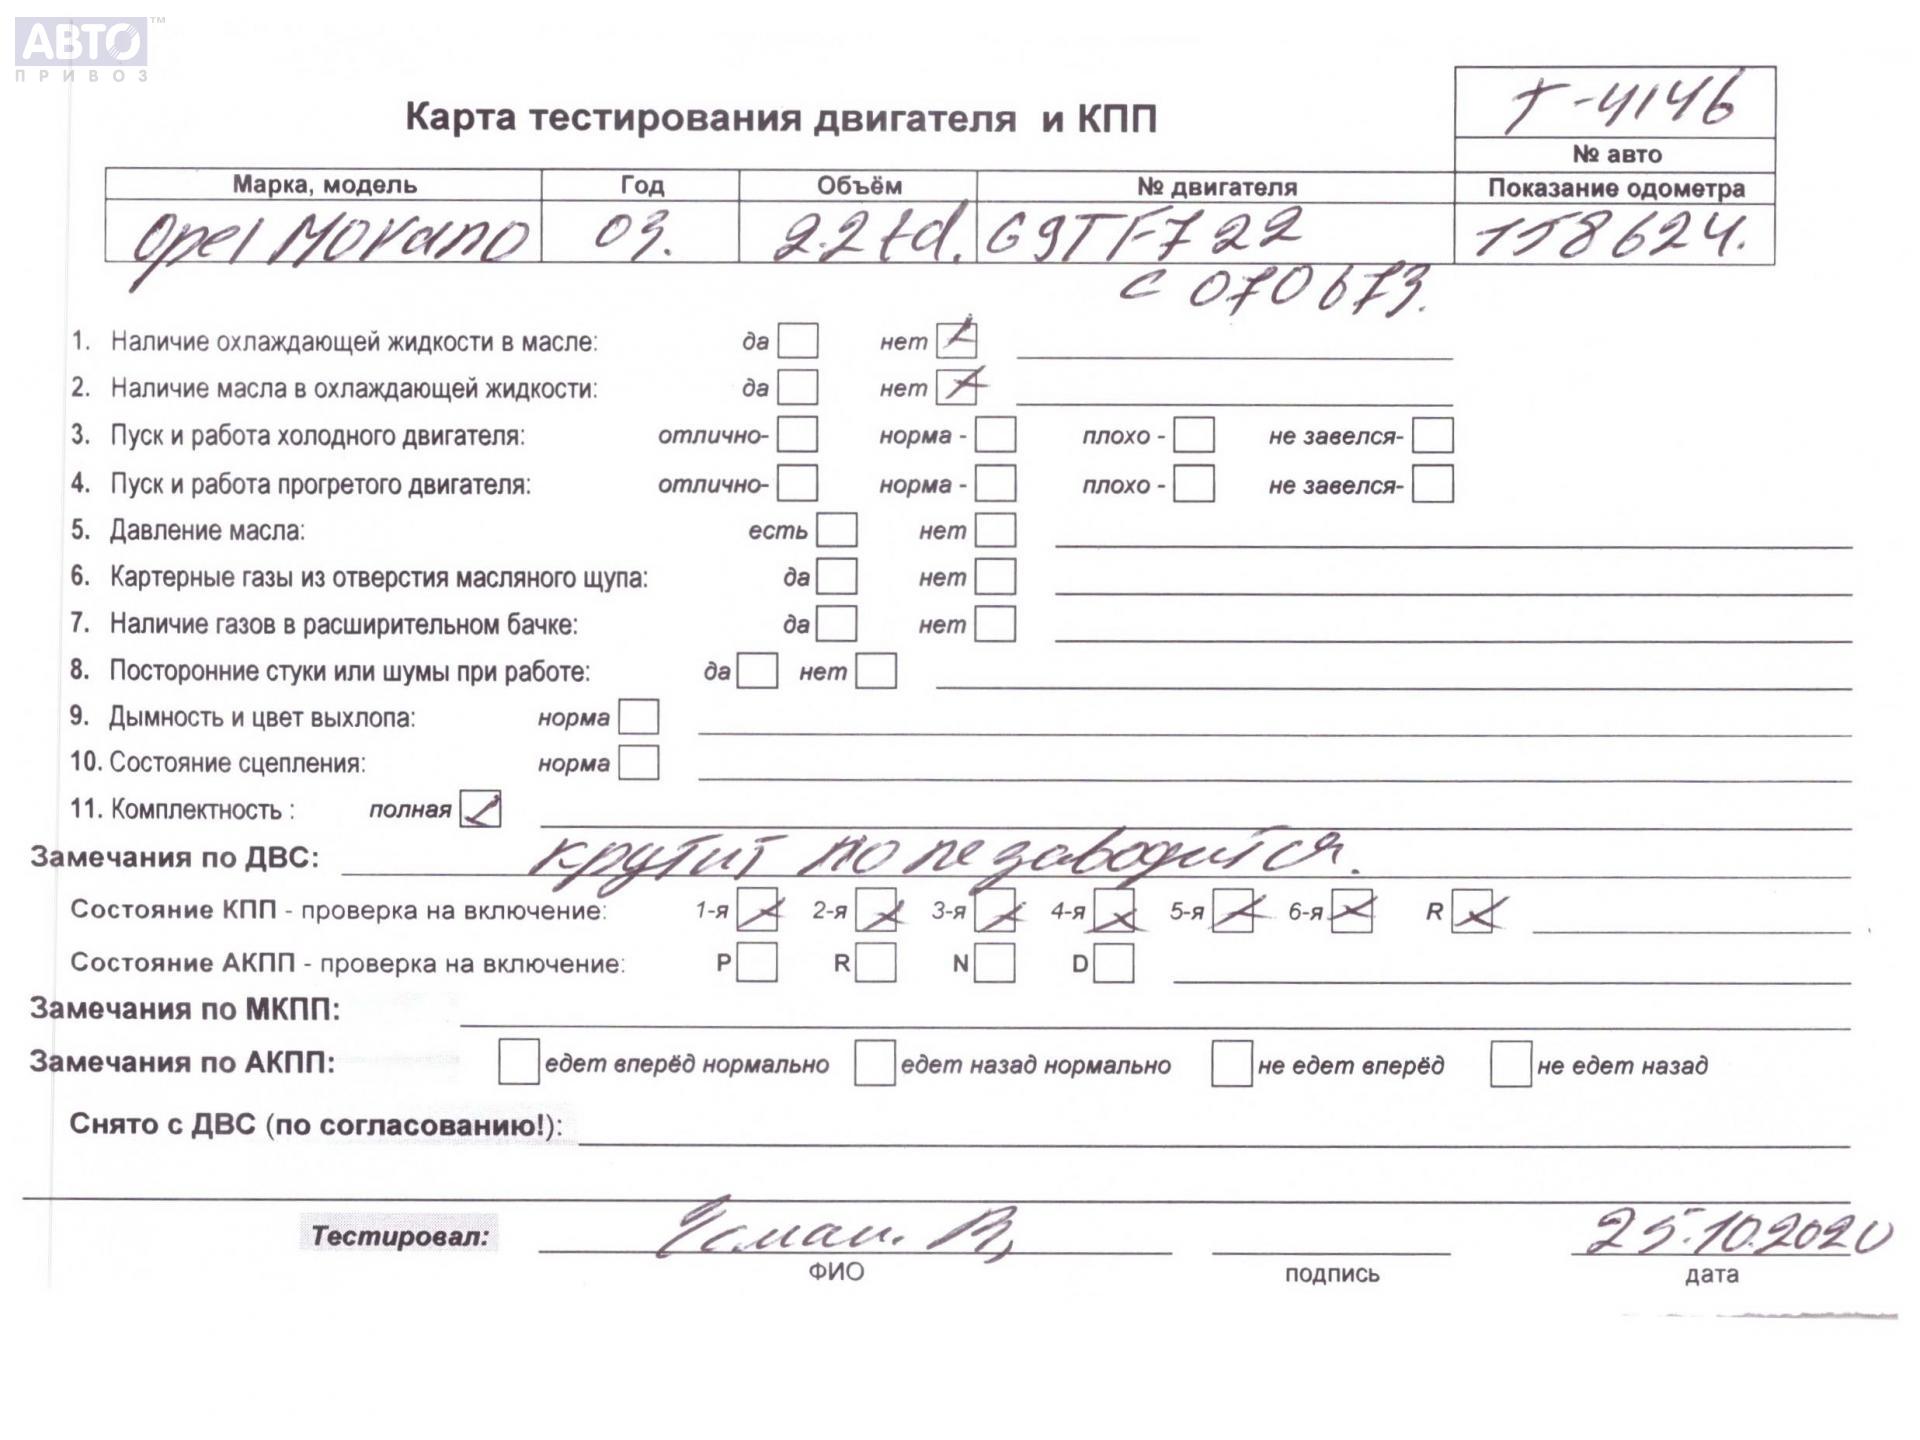 АВТО™
ПРИВОЗ
Т-4146
Карта тестирования двигателя и КПП
№ авто
Марка, модель Год Объём № двигателя Показание одометра
Opel Movano 03. 2.2td. G9TF722 158624.
C 070673.
1. Наличие охлаждающей жидкости в масле: да нет
2. Наличие масла в охлаждающей жидкости: да нет
3. Пуск и работа холодного двигателя: отлично- норма - плохо - не завелся-
4. Пуск и работа прогретого двигателя: отлично- норма - плохо - не завелся-
5. Давление масла: есть нет
6. Картерные газы из отверстия масляного щупа: да нет
7. Наличие газов в расширительном бачке: да нет
8. Посторонние стуки или шумы при работе: да нет
9. Дымность и цвет выхлопа: норма
10. Состояние сцепления: норма
11. Комплектность : полная
Замечания по ДВС: крутит но не заводится.
Состояние КПП - проверка на включение: 1-я 2-я 3-я 4-я 5-я 6-я R
Состояние АКПП - проверка на включение: P R N D
Замечания по МКПП:
Замечания по АКПП: едет вперёд нормально едет назад нормально не едет вперёд не едет назад
Снято с ДВС (по согласованию!):
Тестировал: 25.10.2020
ФИО подпись дата